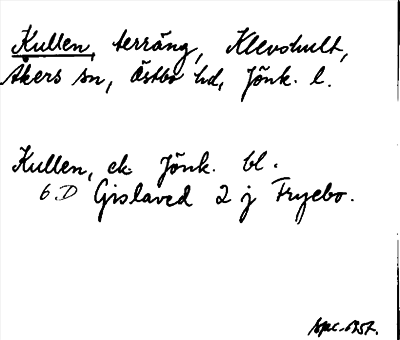 Kullen, terräng, Klevshult,
Åkers sn, Östbo hd, Jönk. l.
Kullen, ek Jönk. bl.
6 D Gislaved 2 j Fryebo.